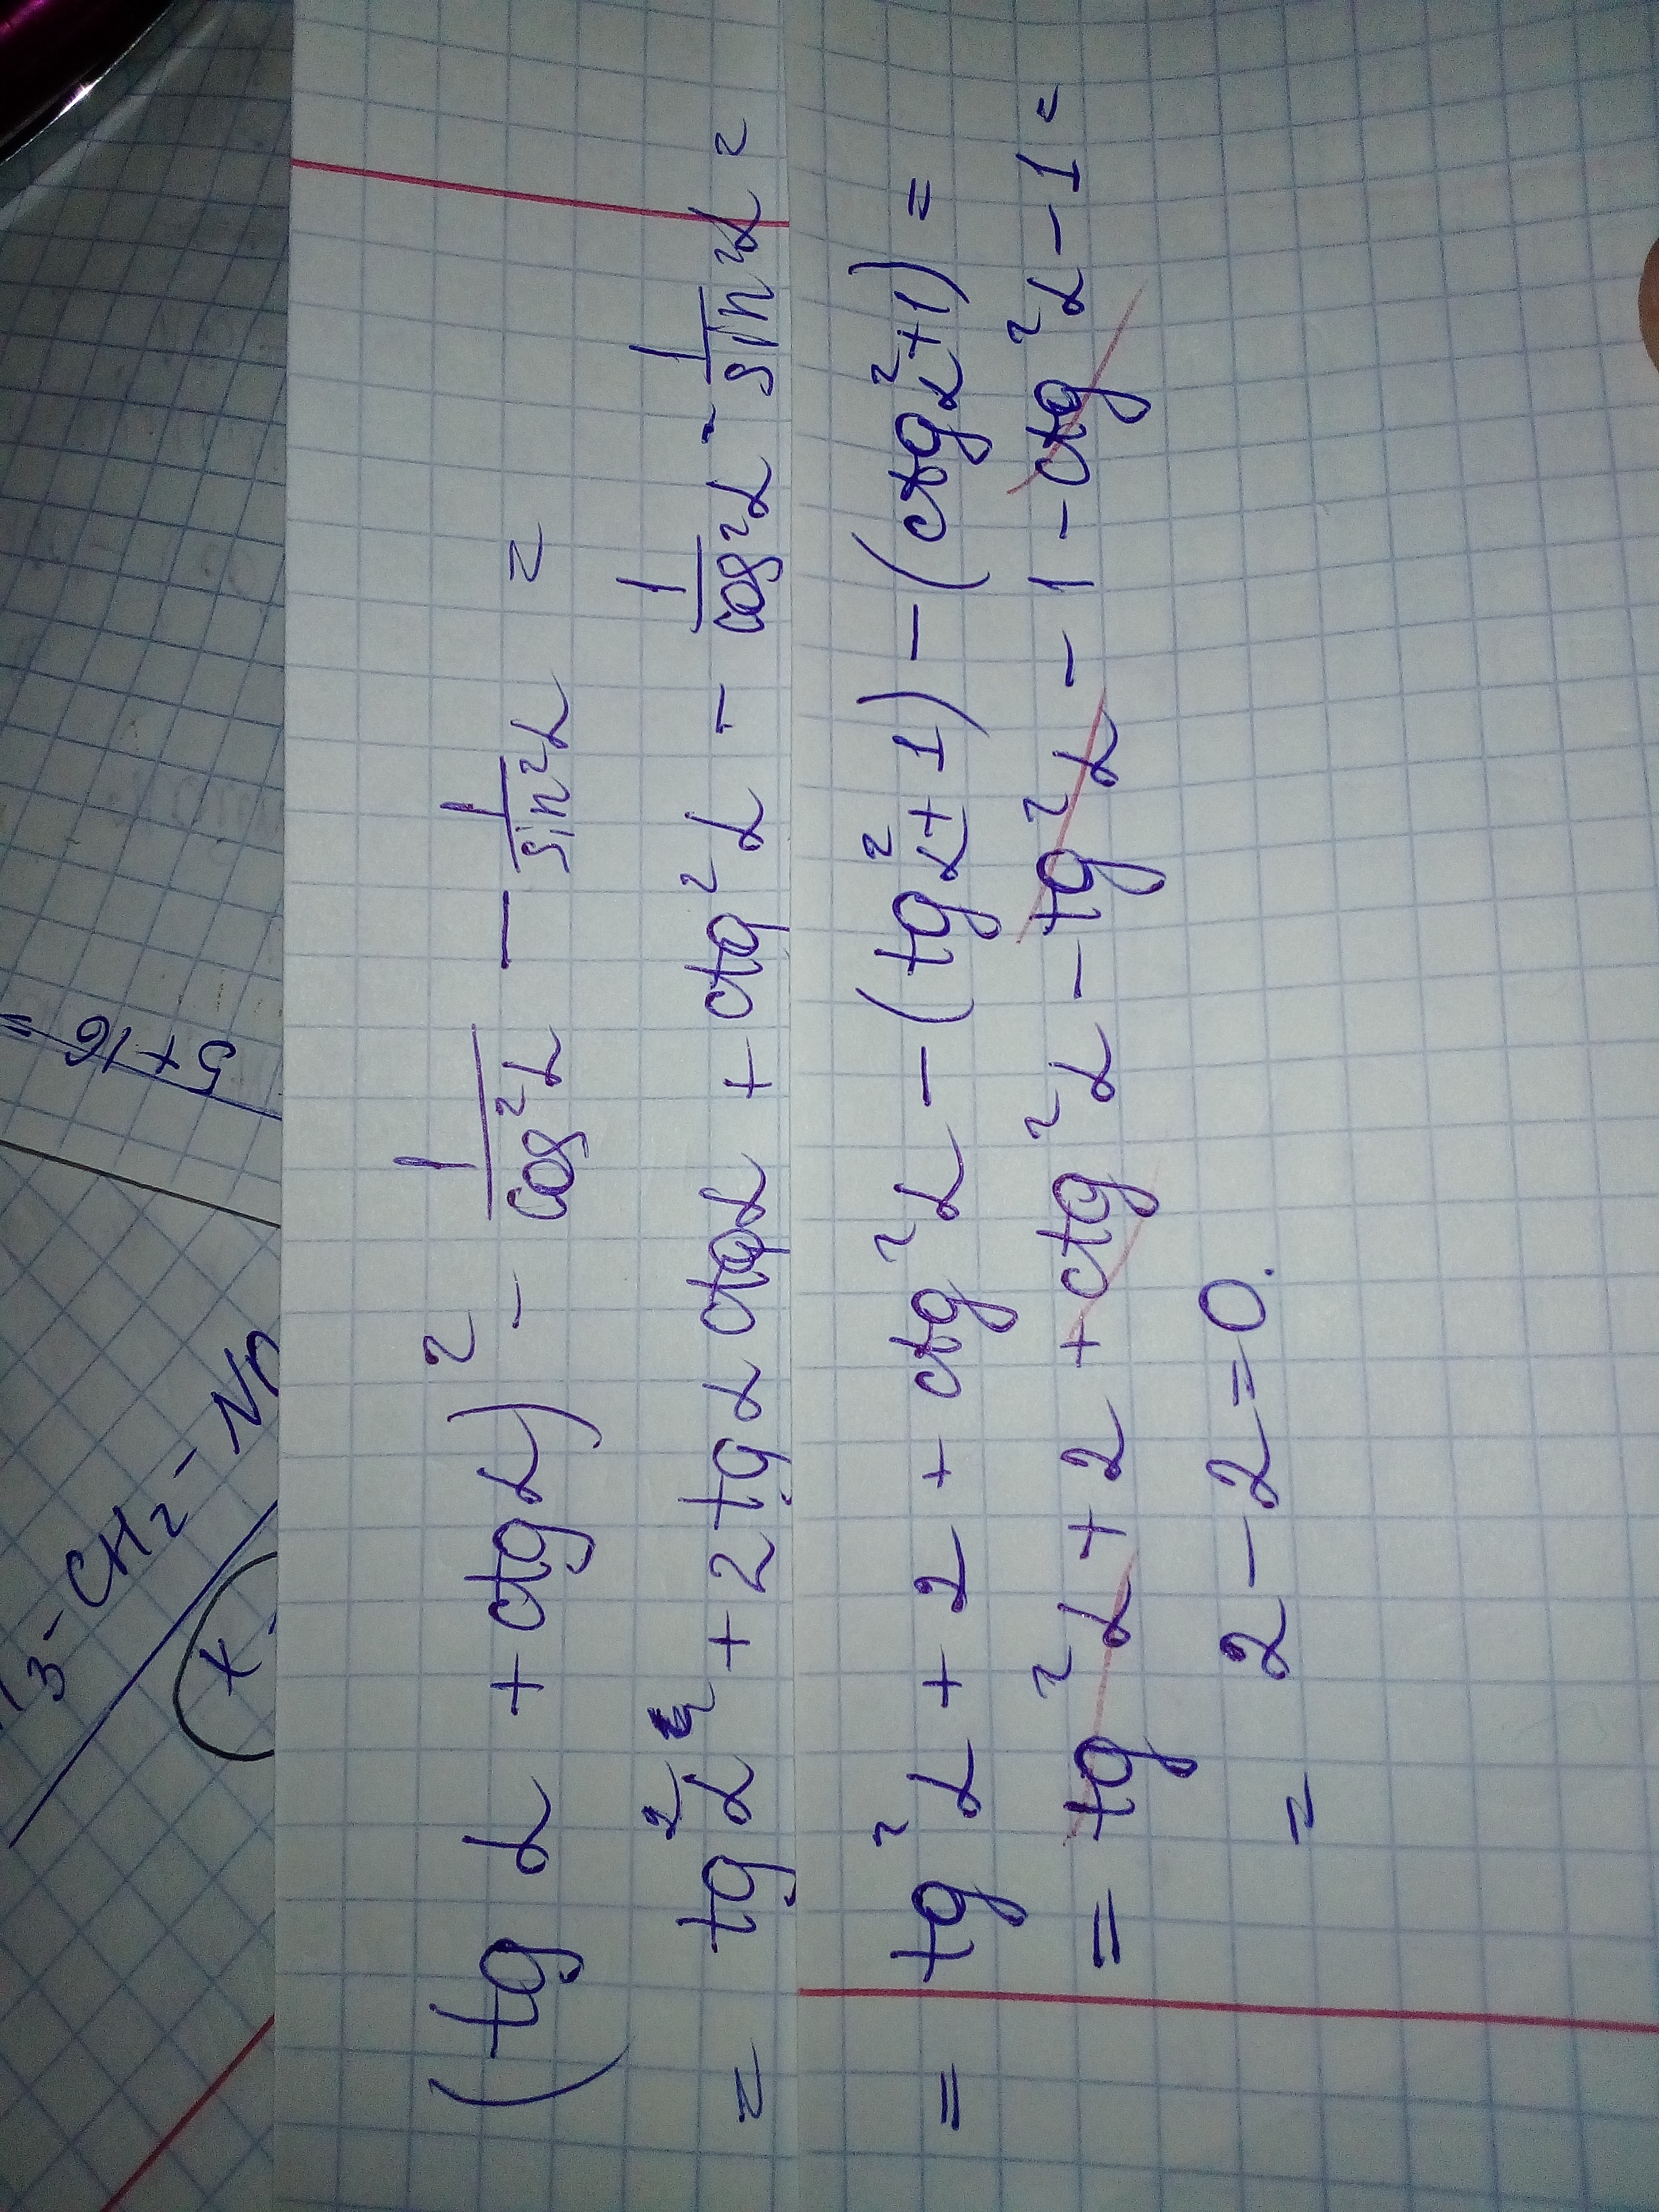 (tg α + ctg α)² - 1/cos²α - 1/sin²α =
= tg²α + 2 tg α ctg α + ctg²α - 1/cos²α - 1/sin²α =
= tg²α + 2 + ctg²α - (tg²α + 1) - (ctg²α + 1) =
= tg²α + 2 + ctg²α - tg²α - 1 - ctg²α - 1 =
= 2 - 2 = 0.
5 + 16 =
3 - CH₂ -